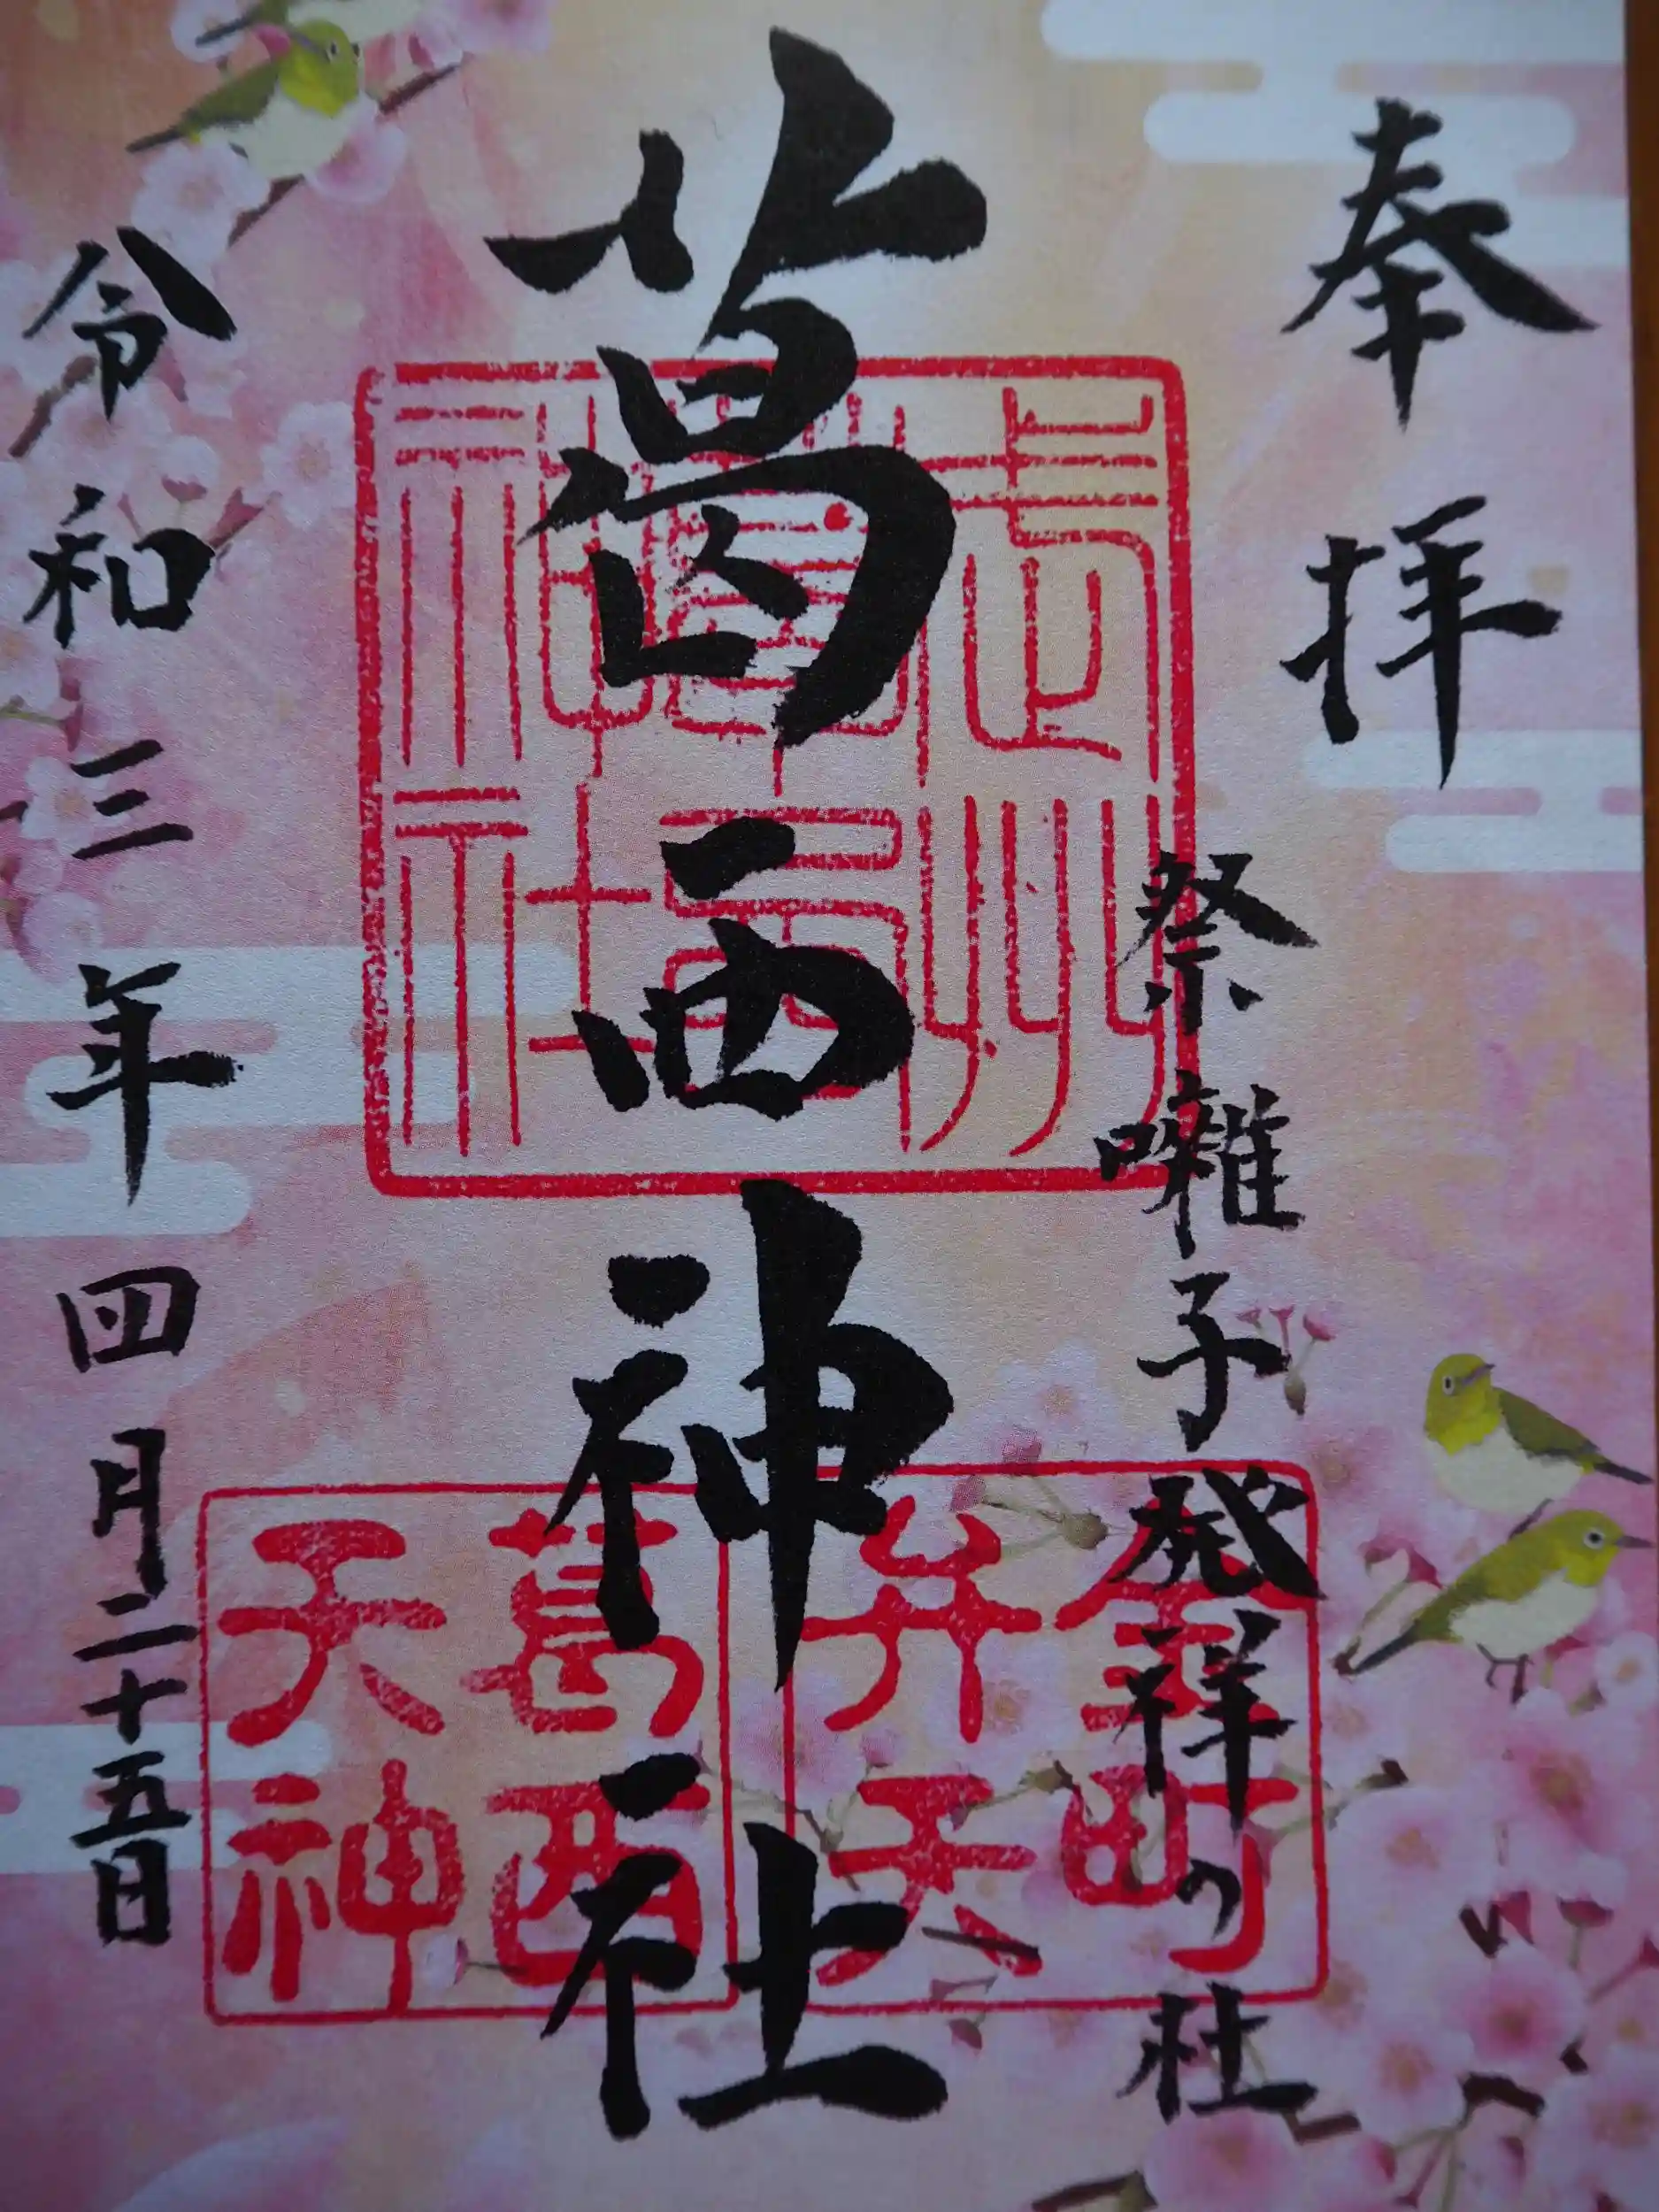 奉拝
祭囃子発祥の社
葛西神社
令和三年四月二十五日
金町
弁天
葛西
天神